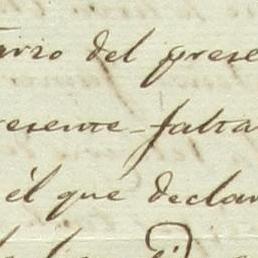 arzo del prese
resente falta
él que declar